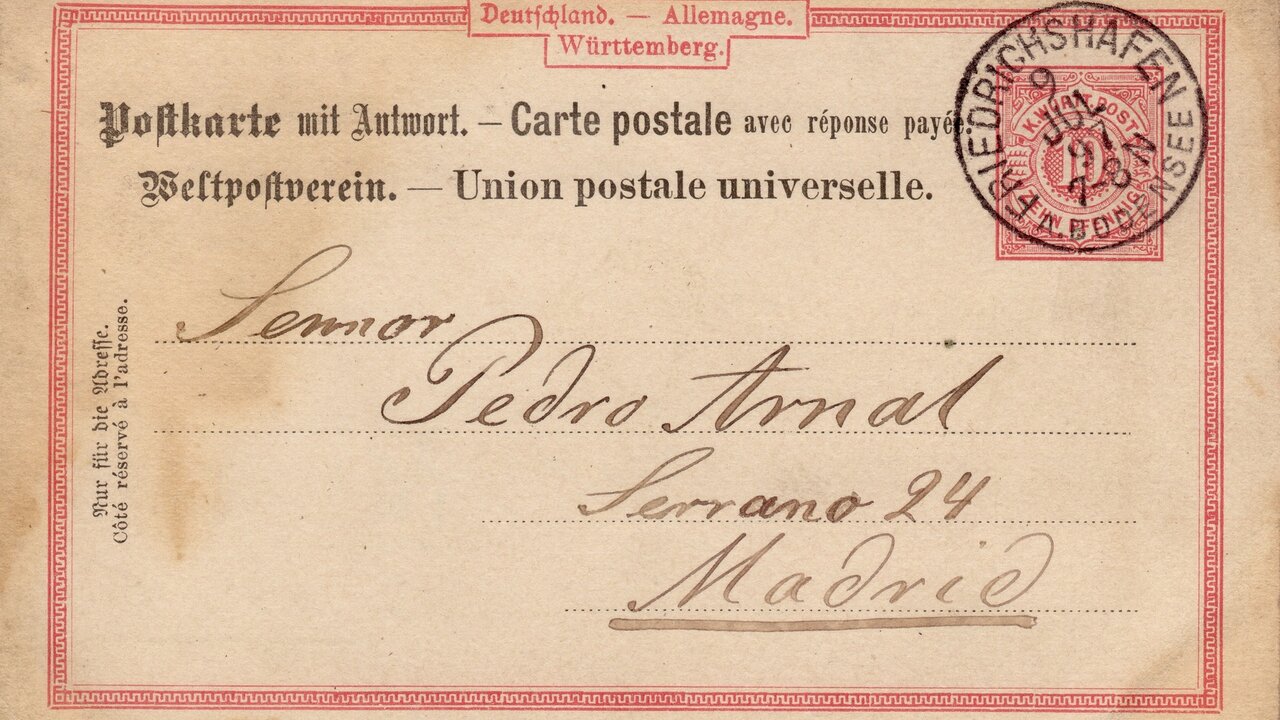 Deutschland. — Allemagne.
Württemberg.
Postkarte mit Antwort. — Carte postale avec réponse payée.
Weltpostverein. — Union postale universelle.
FRIEDRICHSHAFEN
9
97
7-8 N
A. BODENSEE
K. WÜRTT. POST
10
ZEHN PFENNIG
Sennor
Pedro Arnal
Serrano 24
Madrid
Nur für die Adresse.
Côté réservé à l'adresse.